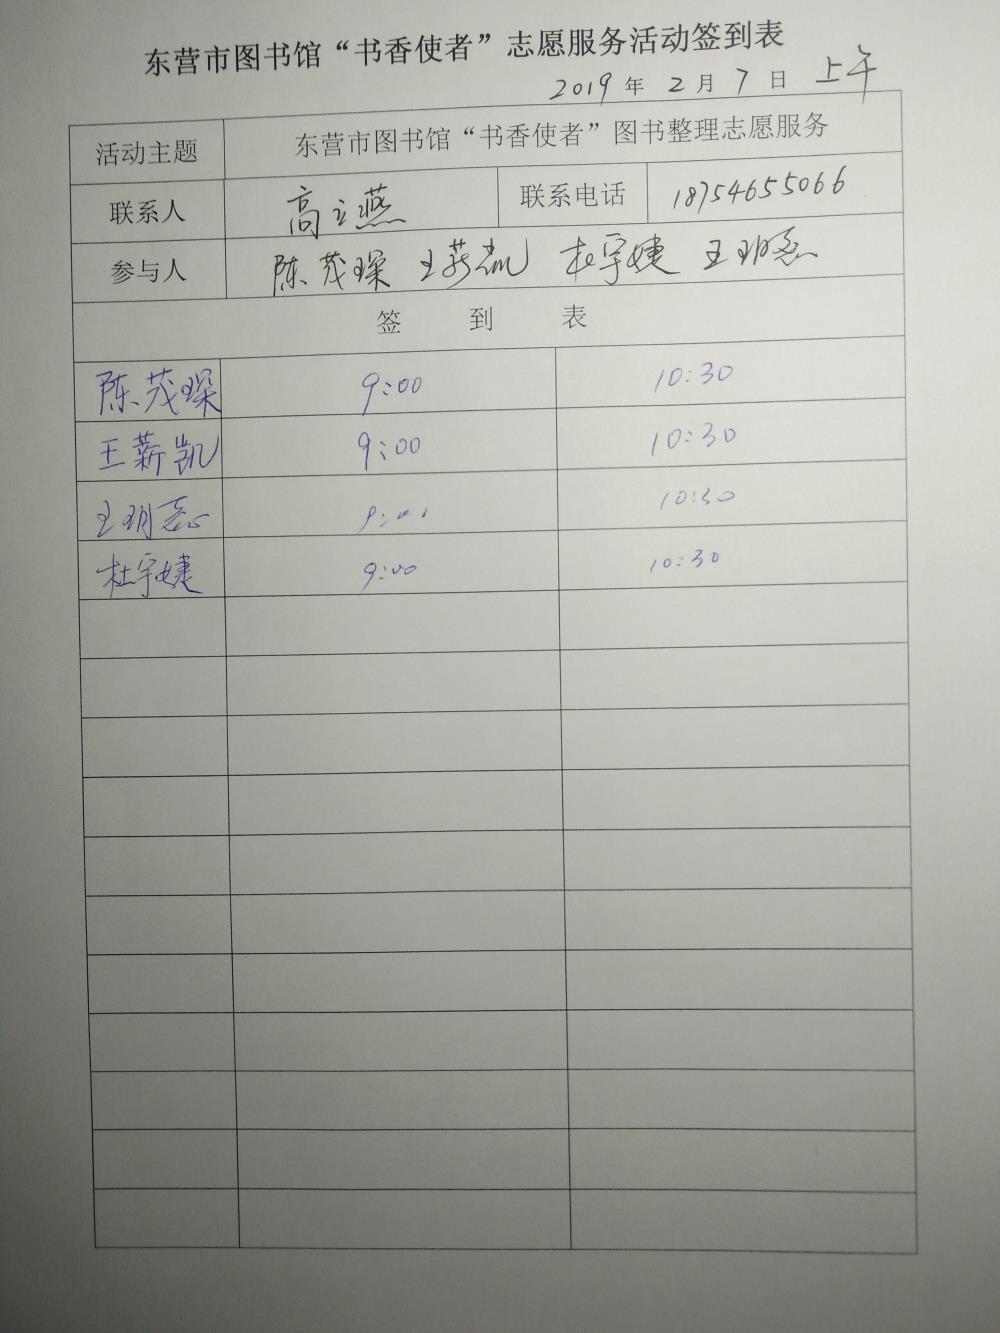 东营市图书馆“书香使者”志愿服务活动签到表
2019 年 2 月 7 日 上午
活动主题 东营市图书馆“书香使者”图书整理志愿服务
联系人 高立燕 联系电话 18754655066
参与人 陈茂琛 王薪凯 杜宇婕 王玥
签 到 表
陈茂琛 9:00 10:30
王薪凯 9:00 10:30
王玥 9:00 10:30
杜宇婕 9:00 10:30